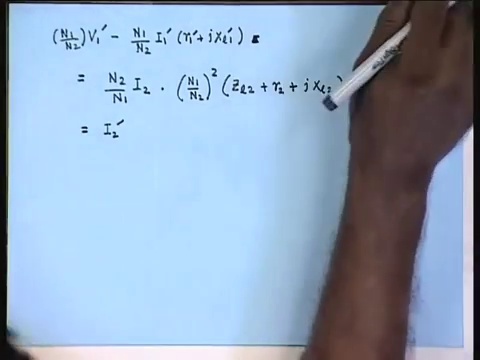 (N₁/N₂) V₁′ − N₁/N₂ I₁′ (r₁′ + j x_{l1}′)
= N₂/N₁ I₂ · (N₁/N₂)² (Z_{l2} + r₂ + j x_{l2})
= I₂′